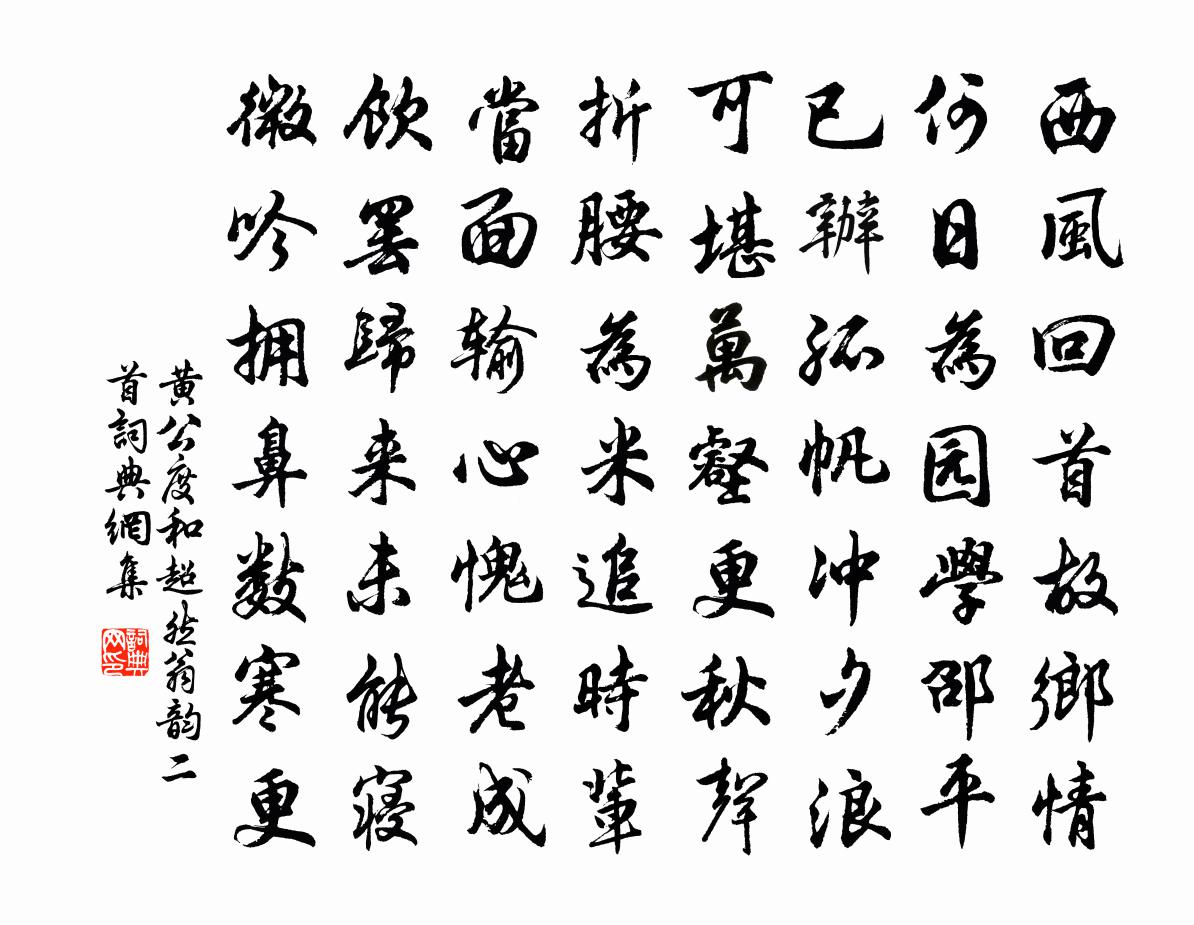 西風回首故鄉情
何日為园學邵平
已辦孤帆冲夕浪
可堪萬壑更秋聲
折腰為米追時輩
當面輸心愧老成
飲罢歸来未能寝
微吟拥鼻數寒更
黄公度和超然翁韵二
首詞典網集
詞典网印